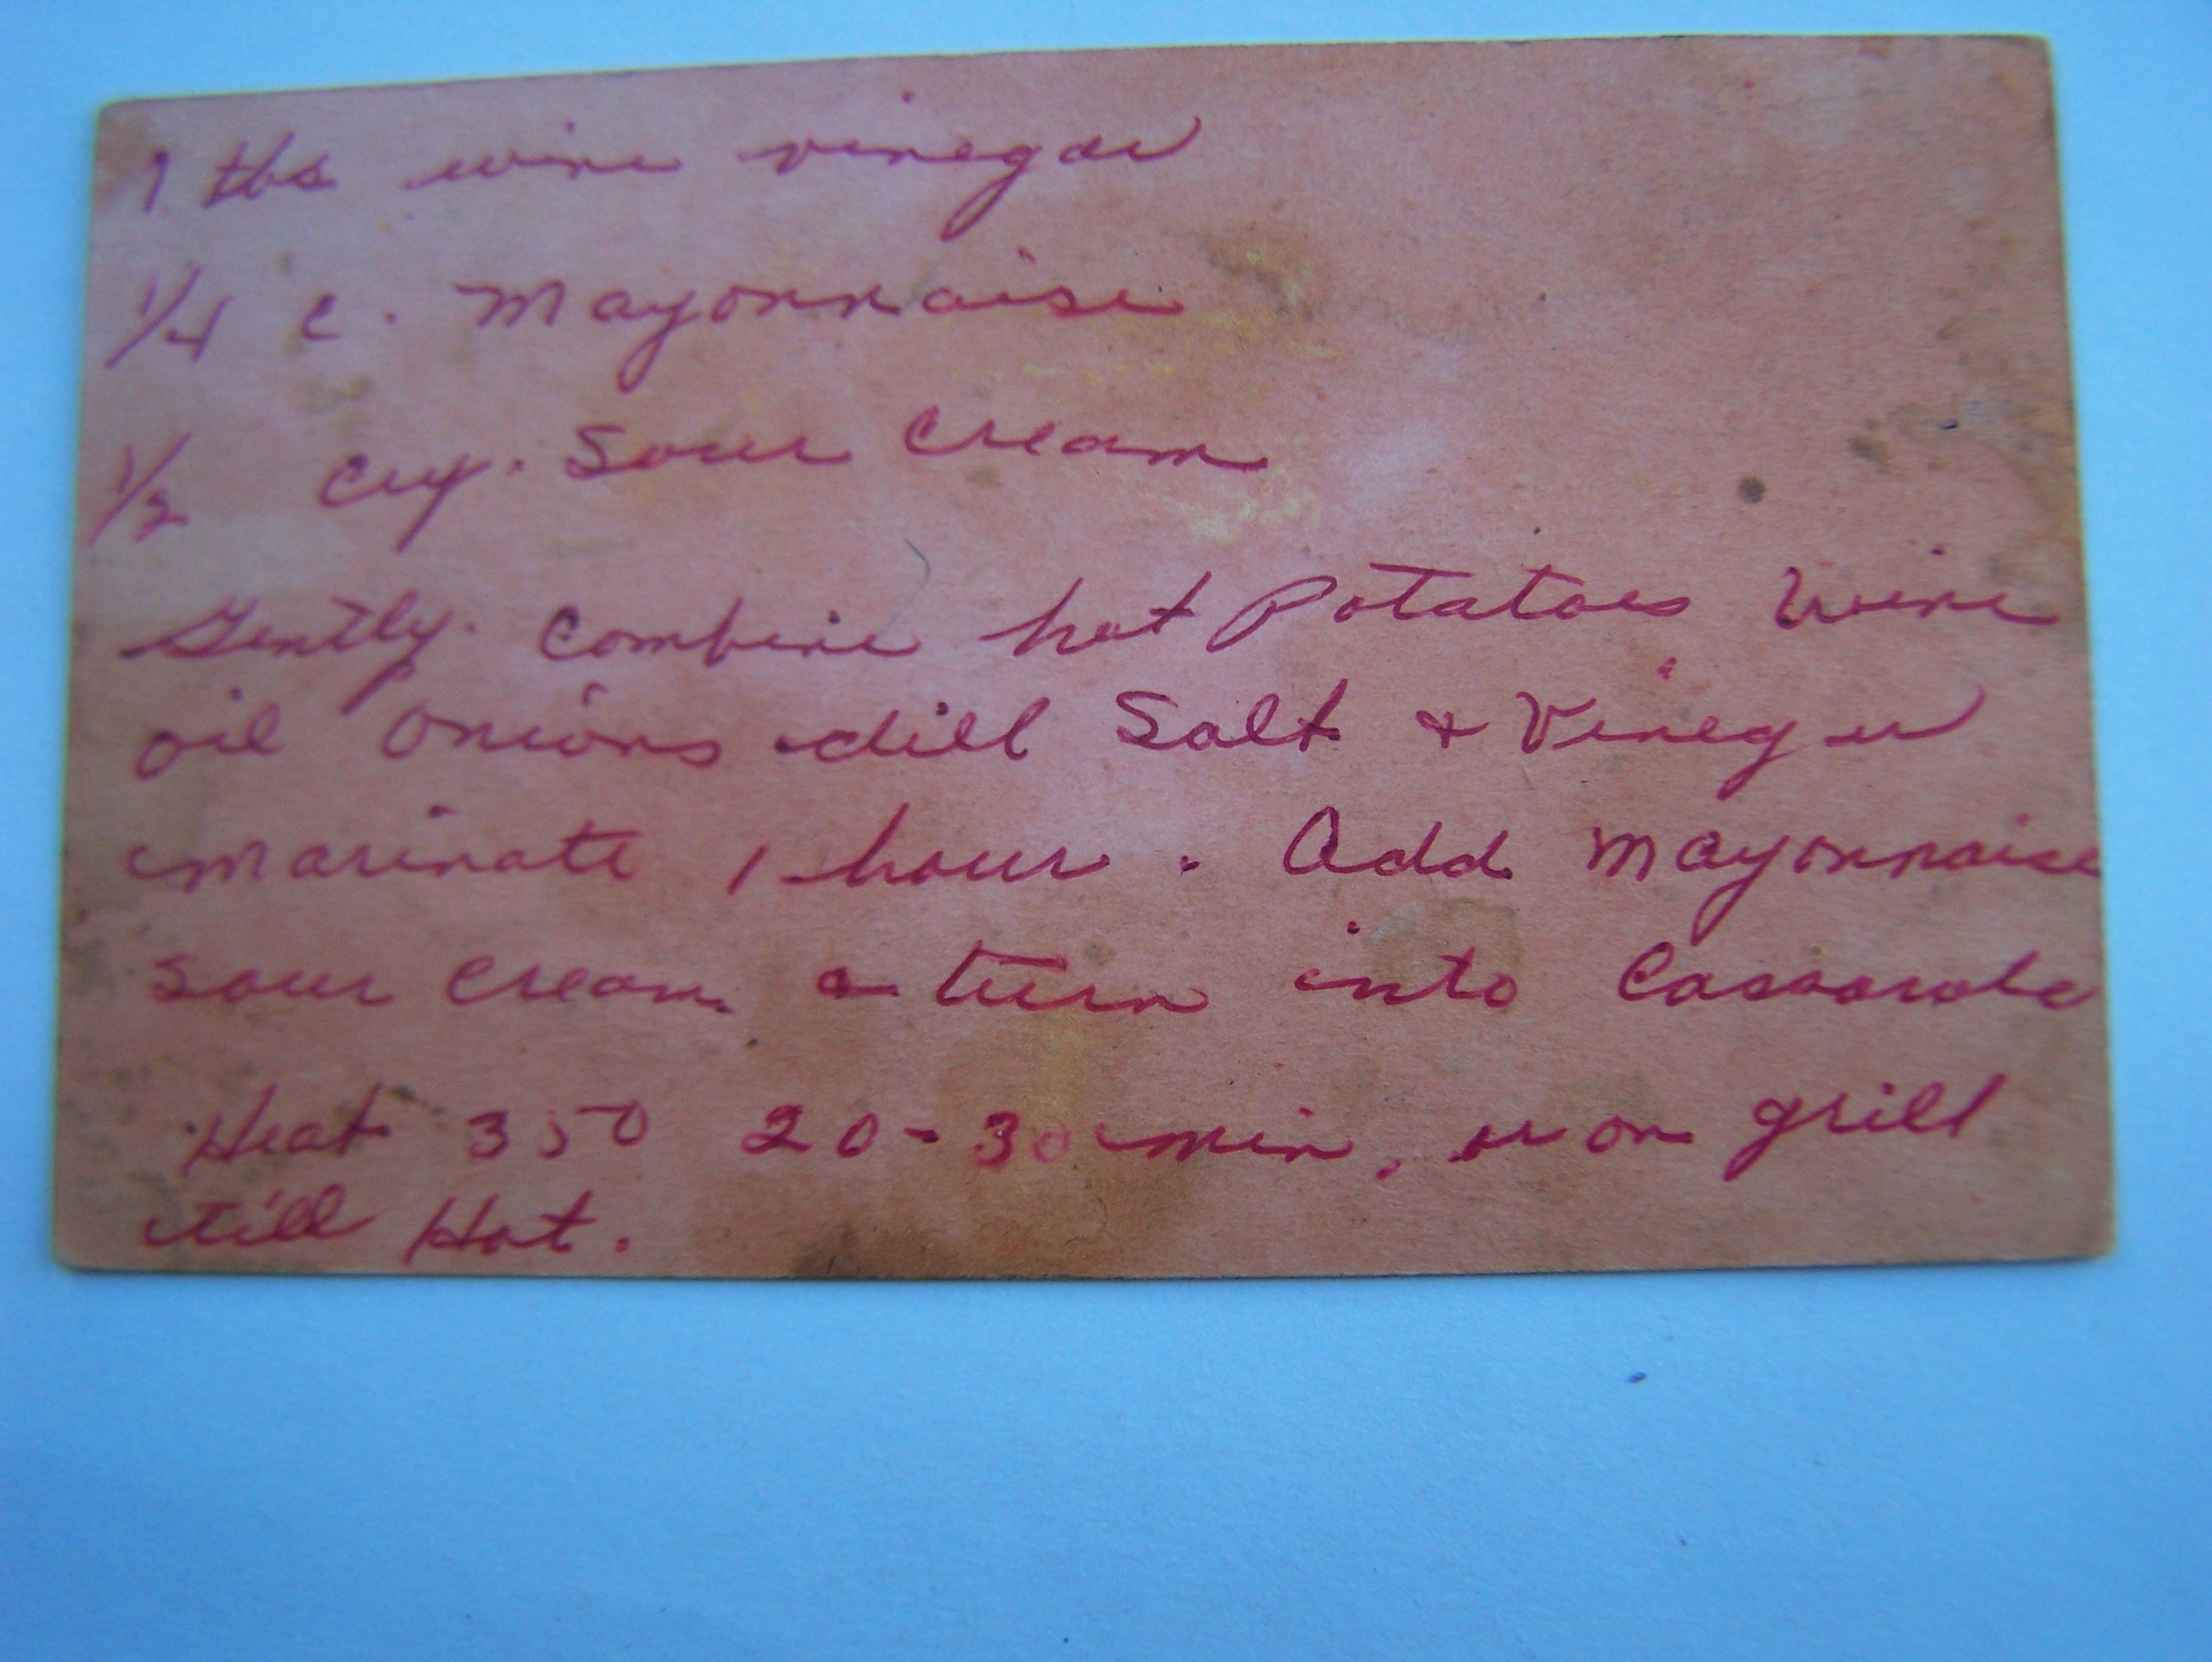 1 tbs wine vinegar
1/4 c. Mayonnaise
1/2 cup. Sour Cream
Gently. Combine hot Potatoes Wine
oil onions dill Salt & Vinegar
marinate 1 hour. Add mayonnaise
sour cream & turn into Cassarole
Heat 350 20-30 min, or on grill
till Hot.